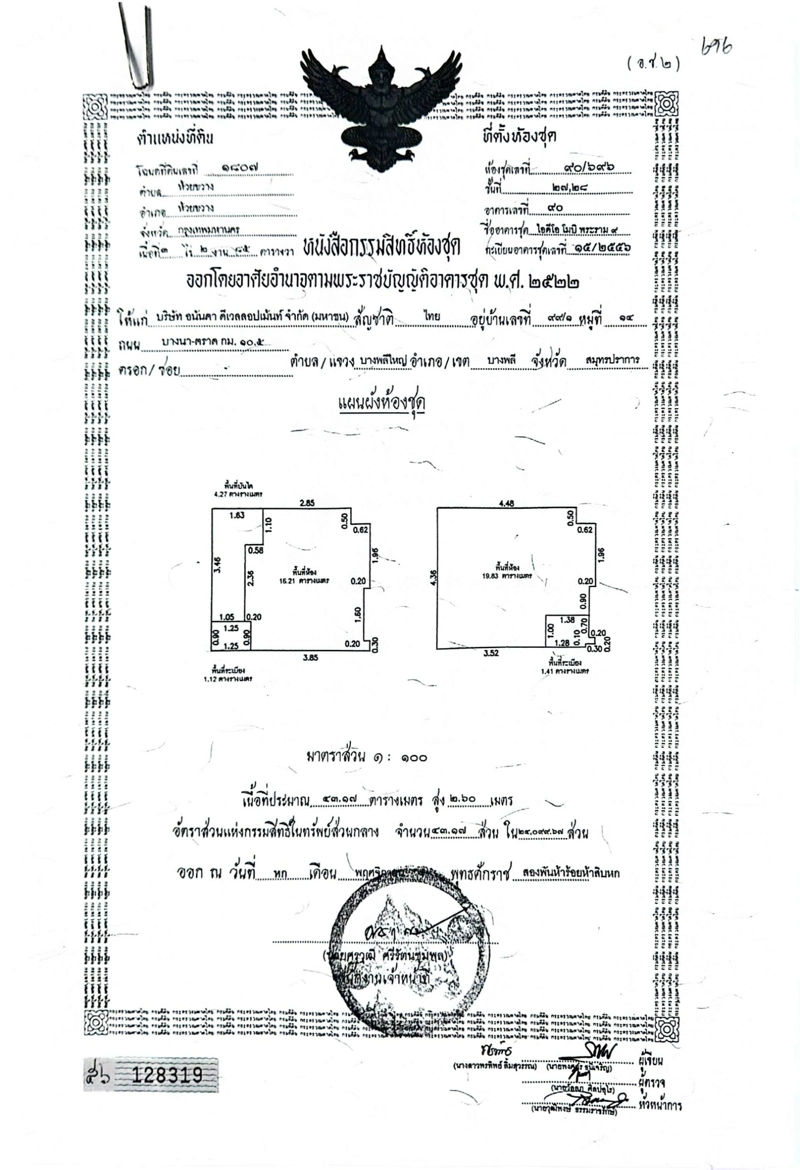 ๖๙๖
(อ.ช.๒)
ตำแหน่งที่ดิน
โฉนดที่ดินเลขที่ ๑๘๐๗
ตำบล ห้วยขวาง
อำเภอ ห้วยขวาง
จังหวัด กรุงเทพมหานคร
เนื้อที่ ๓ ไร่ ๒ งาน ๘๕ ตารางวา
ที่ตั้งห้องชุด
ห้องชุดเลขที่ ๙๐/๖๙๖
ชั้นที่ ๒๗,๒๘
อาคารเลขที่ ๙๐
ชื่ออาคารชุด ไอดีโอ โมบิ พระราม ๙
ทะเบียนอาคารชุดเลขที่ ๑๕/๒๕๕๖
หนังสือกรรมสิทธิ์ห้องชุด
ออกโดยอาศัยอำนาจตามพระราชบัญญัติอาคารชุด พ.ศ. ๒๕๒๒
ให้แก่ บริษัท อนันดา ดีเวลลอปเม้นท์ จำกัด (มหาชน) สัญชาติ ไทย อยู่บ้านเลขที่ ๙๙/๑ หมู่ที่ ๑๔
ถนน บางนา-ตราด กม. ๑๐.๕
ตรอก/ซอย ตำบล/แขวง บางพลีใหญ่ อำเภอ/เขต บางพลี จังหวัด สมุทรปราการ
แผนผังห้องชุด
พื้นที่บันได
4.27 ตารางเมตร
1.83
2.85
1.10
0.50
0.62
3.46
0.58
2.36
1.96
พื้นที่ห้อง
16.21 ตารางเมตร
0.20
1.05
0.20
1.60
1.25
0.90
0.90
1.25
0.20
0.30
3.85
พื้นที่ระเบียง
1.12 ตารางเมตร
4.48
0.50
0.62
4.36
1.96
พื้นที่ห้อง
19.83 ตารางเมตร
0.20
0.90
1.38
1.00
0.10
0.70
0.20
0.20
1.28
0.30
3.52
พื้นที่ระเบียง
1.41 ตารางเมตร
มาตราส่วน ๑ : ๑๐๐
เนื้อที่ประมาณ ๔๓.๑๗ ตารางเมตร สูง ๒.๖๐ เมตร
อัตราส่วนแห่งกรรมสิทธิ์ในทรัพย์ส่วนกลาง จำนวน ๔๓.๑๗ ส่วน ใน ๒๔,๐๙๙.๖๗ ส่วน
ออก ณ วันที่ หก เดือน พฤศจิกายน พุทธศักราช สองพันห้าร้อยห้าสิบหก
พนักงานเจ้าหน้าที่
ผู้เขียน
ผู้ตรวจ
หัวหน้าการ
128319